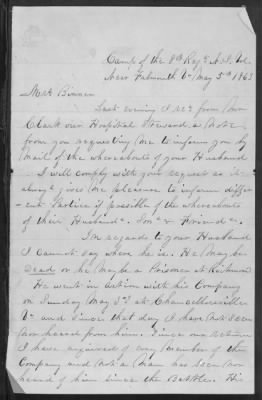 Camp of the 8th Regt N.J. Vol.
Near Falmouth Va May 5th 1863
Mrs. Bonnen
Last evening I recd from Mr
Clark our Hospital Steward a Note
from you requesting me to inform you by
mail of the whereabouts of your Husband
I will comply with your request as it
always gives me pleasure to inform differ-
ent Parties if possible of the whereabouts
of their Husbands. Sons & Friends.
In regards to your Husband
I cannot say where he is. He may be
Dead or he may be a Prisoner at Richmond
He went in Action with his Company
on Sunday May 3d at Chancellorsville
Va and since that day I have not seen
nor heard from him. Since our return
I have inquired of every member of the
Company and not a man has seen nor
heard of him since the Battle. His